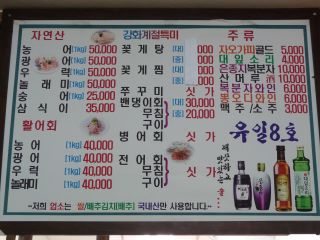 자연산
농 어 [1kg] 50,000
광 어 [1kg] 50,000
우 럭 [1kg] 50,000
놀 래 미 [1kg] 50,000
숭 어 [1kg] 35,000
삼 식 이 [1kg] 25,000
활어회
농 어 [1kg] 40,000
광 어 [1kg] 40,000
우 럭 [1kg] 40,000
놀래미 [1kg] 40,000
강화계절특미
꽃 게 탕 [대] 000
[중] 000
꽃 게 찜 [대] 000
[중] 20,000
쭈 꾸 미 싯 가
밴댕이회 싯 가
무침
구이
병 어 회 싯 가
무침
전 어 회 싯 가
구이
주 류
자오가피골드 5,000
대 잎 소 리 4,000
은종지복분자 10,000
산 머 루 10,000
복 분 자 와 인
뽕 오 디 와 인
맥 주 / 소 주 3,000
유일8호
-저희 업소는 쌀/배추김치(배추) 국내산만 사용합니다-